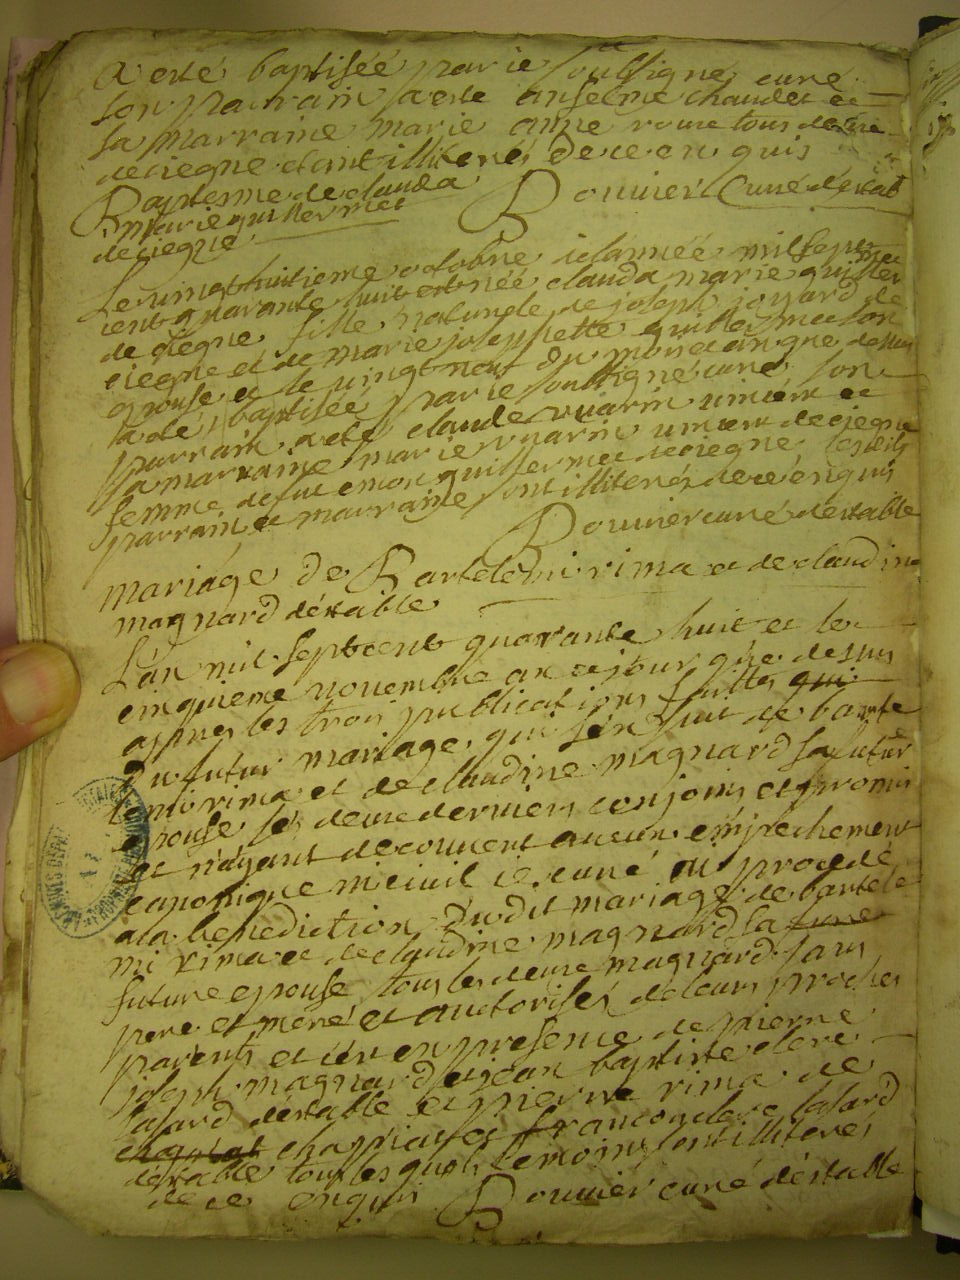 a esté baptisée par ie soubsigné curé
son parrain a esté anselme chaudet et
sa marraine marie anne roure tous de
deciegne etant illiterés de ce en quis
Baptesme de clauda Bonnier Curé d'establ
marie guillermet
deciegne
Le vingt huitieme octobre idannée mil sept
cent quarante huit est née clauda marie guiller
de ciegne fille naturele de joseph joyard de
ciegne et de marie josephette guillermet son
epouse et le vingt neuf du mois et an que dessus
a été baptisée par ie soubsigné curé son
parrain a eté claude vuarin vincent et
sa marraine marie vuarin vincent deciegne
femme de fut emon guillermet deciegne lesdits
parrain et marraine sont illiterés de ce enquis
Bonnier curé destable
mariage de Bartelemi rima et de claudine
magnard destable
L'an mil septcent quarante huit et le
cinquieme novembre an et jour que dessus
apres les trois publications faittes
du futur mariage qui s'en suit de barte
lemi rima et de claudine magnard sa future
epouse les deux derniers conjoins et promis
et n'ayant decouvert aucun empechement
canonique ni civil ie curé ai procedé
a la benediction dudit mariage de bartele
mi rima et de claudine magnard sa
future epouse tous les deux magnard sans
pere et mere et auctorisés de leurs proches
parents et ce en presence de pierre
joseph magnard et jean baptiste clere
lasard destable et pierre rima de
chapiates francon clere lasard
destable tous lesquels temoins sont illiterés
de ce enquis Bonnier curé destable